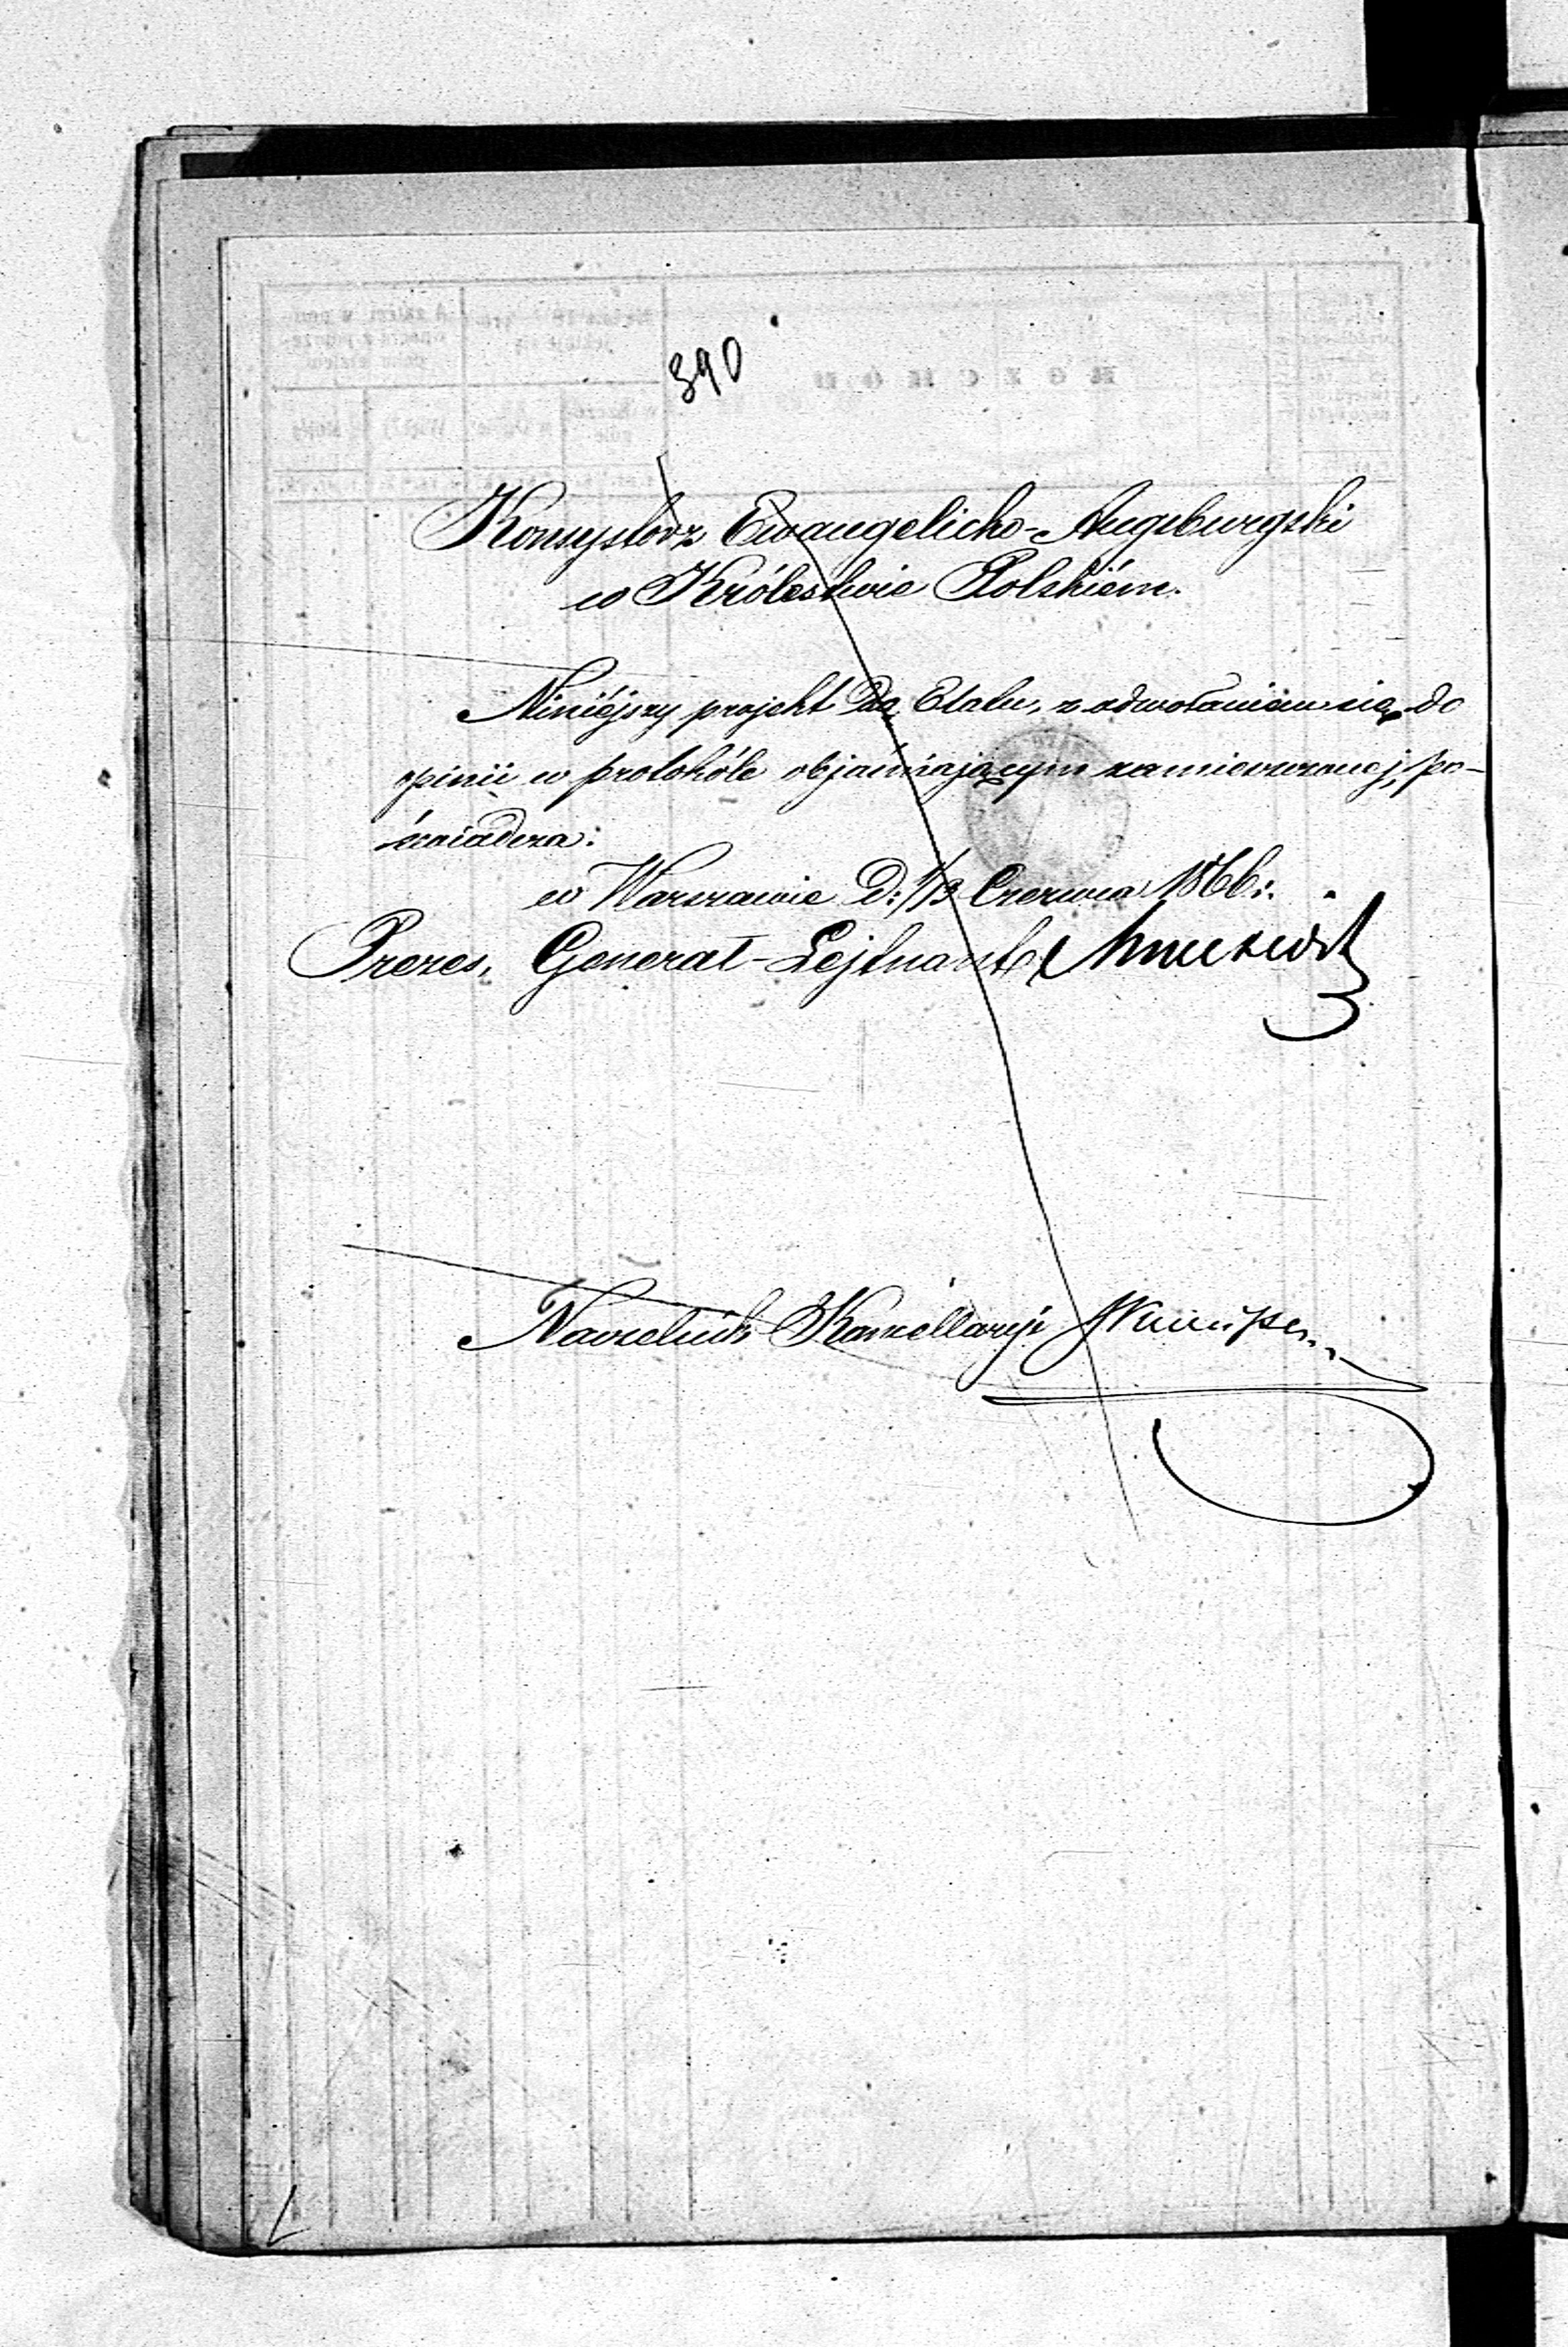 390
Konsystorz Ewangelicko-Augsburgski
w Królestwie Polskiém.
Niniéjszy projekt do Etatu, z odwołaniem się do
opinii w protokóle objaśniającym zamieszczonej, po-
świadcza:
w Warszawie D: 1/13 Czerwca 1866:.
Prezes, Generał-Lejtnant
Naczelnik Kancellaryi